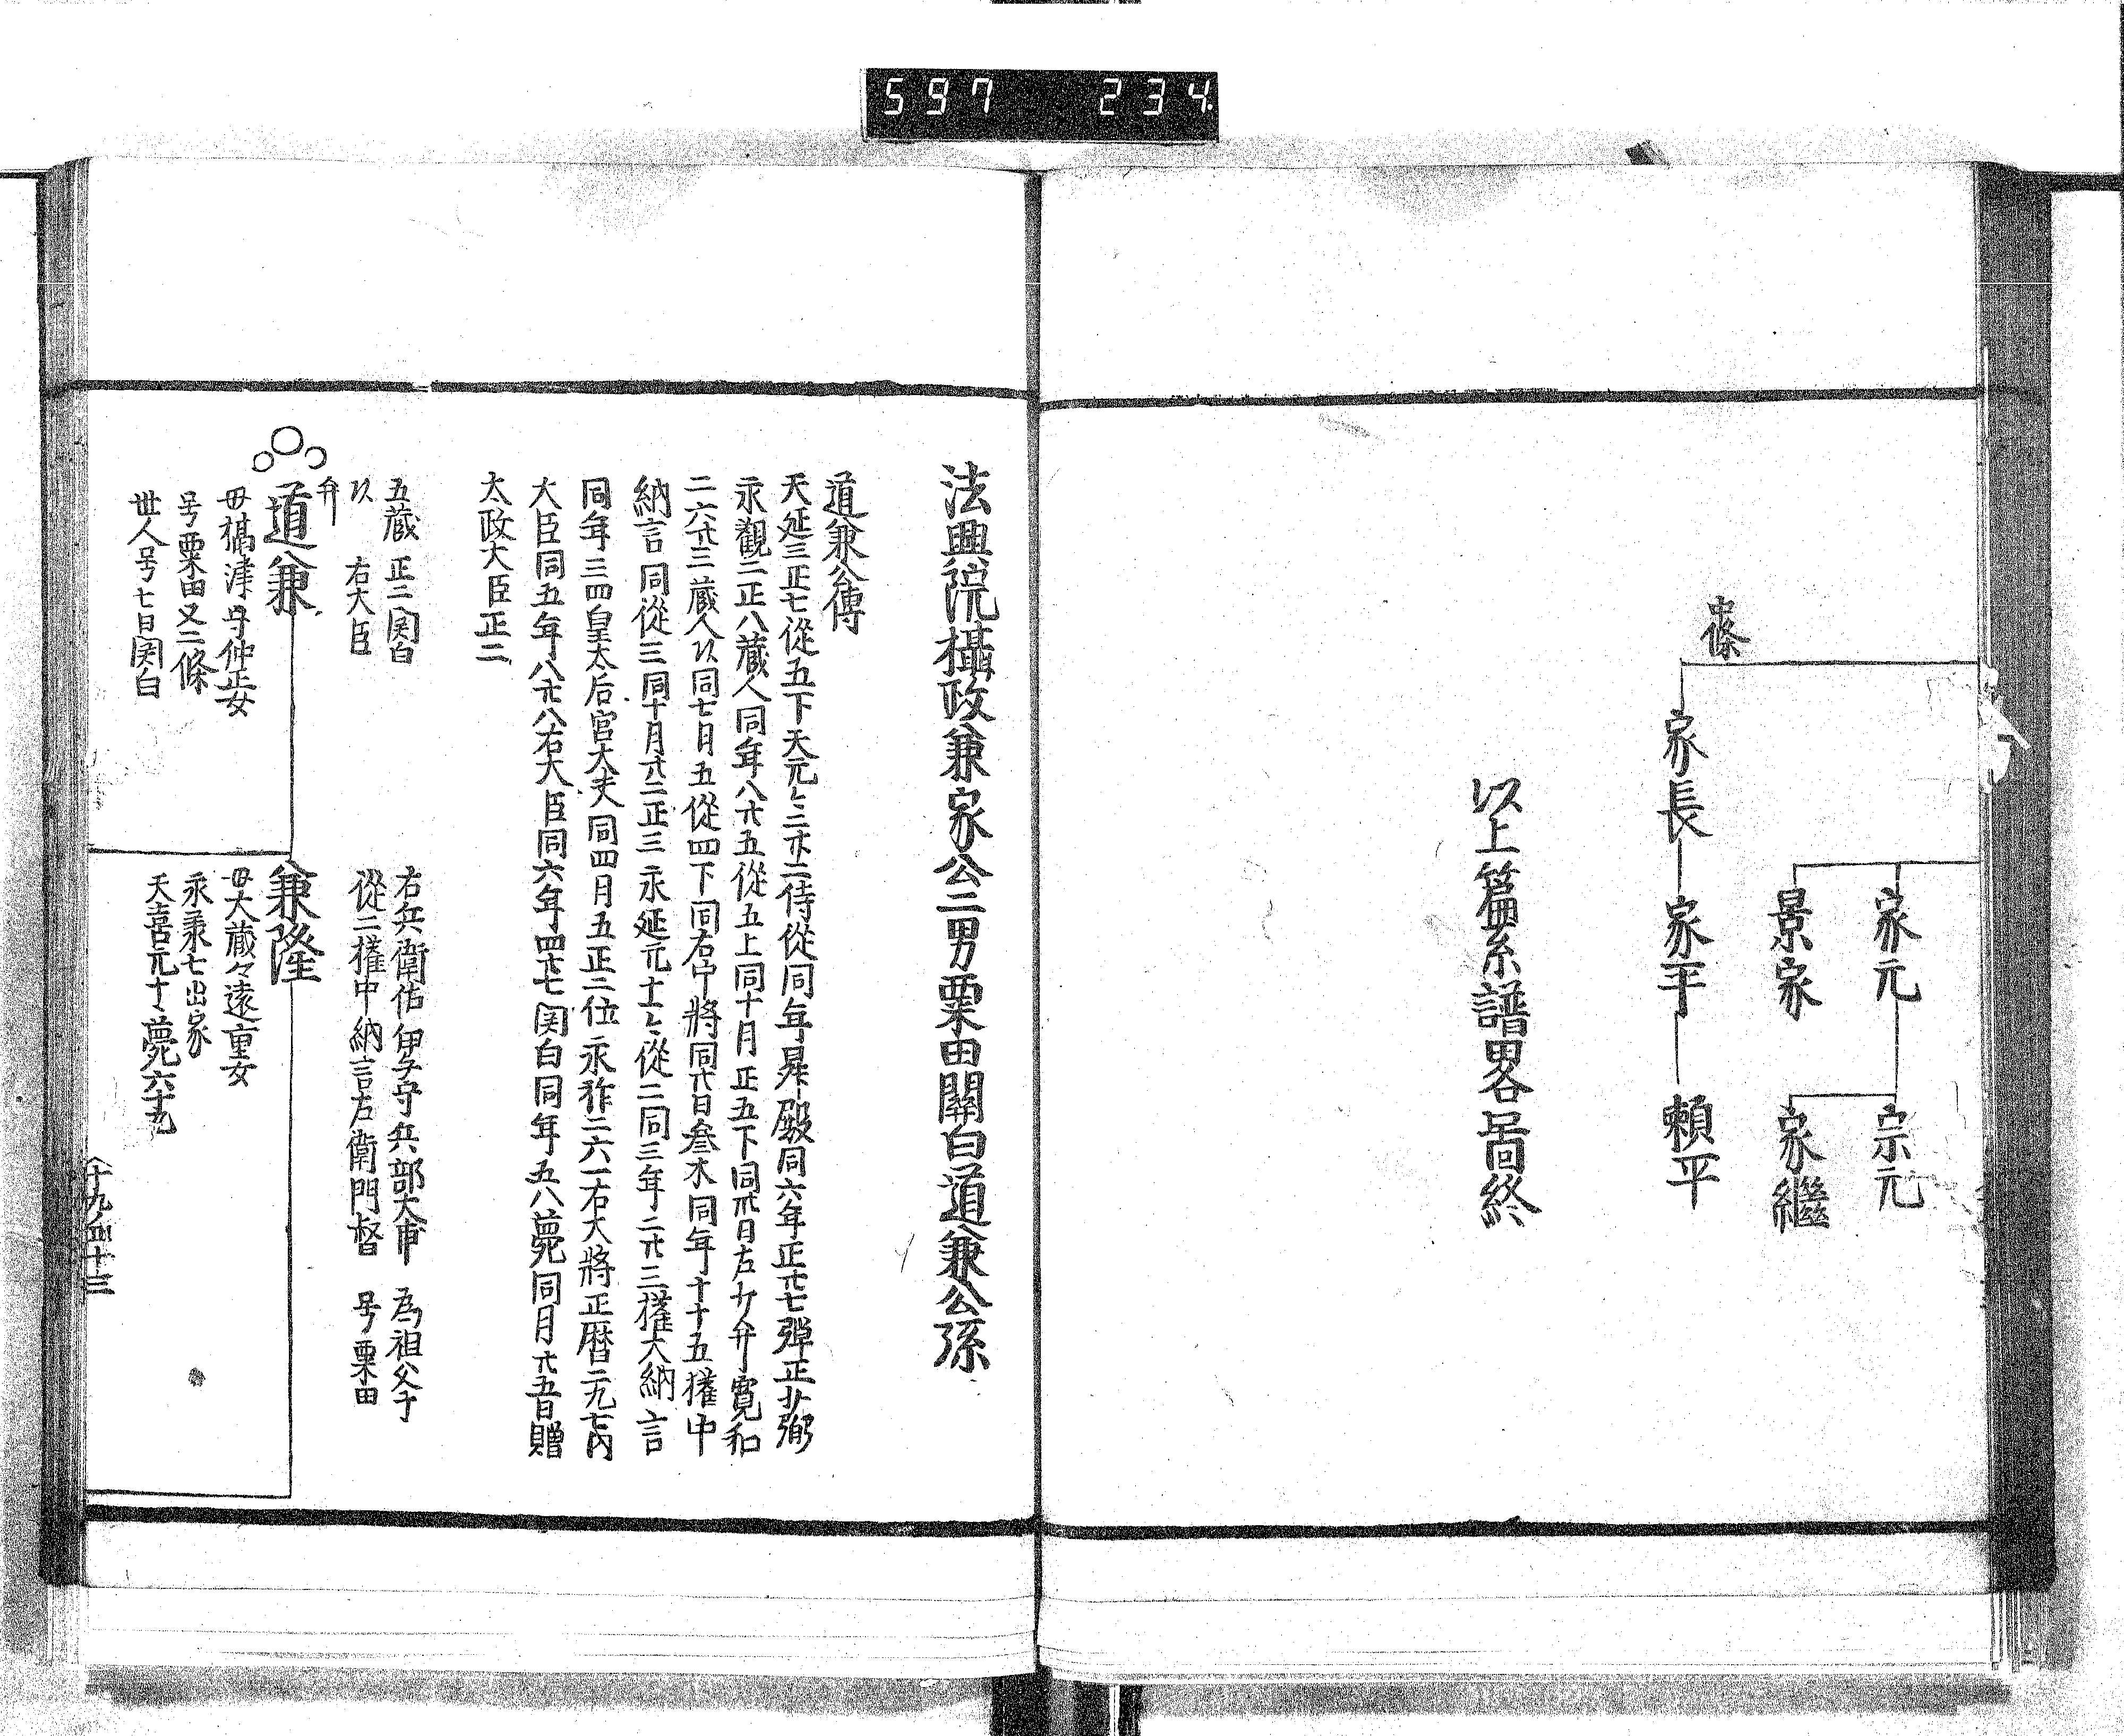 597 234
家元
宗元
景家
家繼
中條
家長
家平
頼平
以上篇系譜畧啚終
法興院攝政兼家公三男粟田關白道兼公孫
道兼公傳
天延三正七從五下天元
侍從同年昇殿同六年正廿七彈正少弼
永觀二正八藏人同年八廿五從五上同十月正五下同
日左少弁寛和
二六廿三藏人
同七月五從四下同右中將同廿日叁木同年十十五權中
納言同從三同十月廿二正三永延元十一
從二同三年二廿三權大納言
同年三四皇太后宮大夫同四月五正二位永祚二六一右大將正暦二九七内
大臣同五年八廿八右大臣同六年四廿七関白同年五八薨同月廿五日贈
太政大臣正二
五藏 正二関白
以 右大臣
弁
道兼
母攝津守仲正女
号粟田又二條
世人号七日関白
右兵衛佐伊予守兵部大甫 為祖父子
從二權中納言左衛門督 号粟田
兼隆
母大藏々遠重女
永承七出家
天喜元十
薨六十九
十九ノ四十三